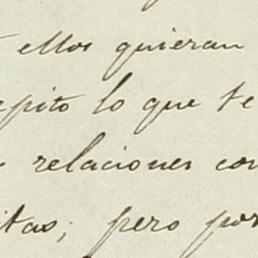 ellos quieran
epito lo que te
relaciones con
itas; pero por